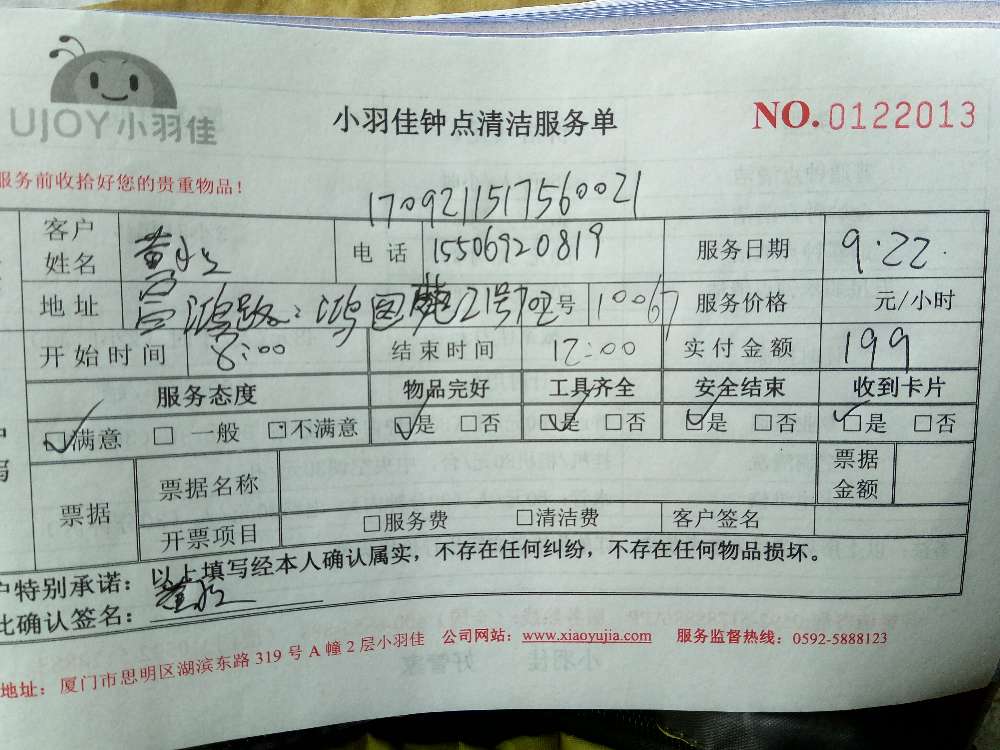 UJOY小羽佳
小羽佳钟点清洁服务单
NO.0122013
服务前收拾好您的贵重物品!
1709211517560021
客户姓名 黄 电话 15506920819 服务日期 9.22.
地址 鸿图苑21号702号 10067 服务价格 元/小时
开始时间 8:00 结束时间 12:00 实付金额 199
服务态度 物品完好 工具齐全 安全结束 收到卡片
☑满意 □一般 □不满意 ☑是 □否 ☑是 □否 ☑是 □否 ☑是 □否
票据 票据名称 票据金额
开票项目 □服务费 □清洁费 客户签名
户特别承诺：以上填写经本人确认属实，不存在任何纠纷，不存在任何物品损坏。
此确认签名：
地址：厦门市思明区湖滨东路319号A幢2层小羽佳 公司网站：www.xiaoyujia.com 服务监督热线：0592-5888123